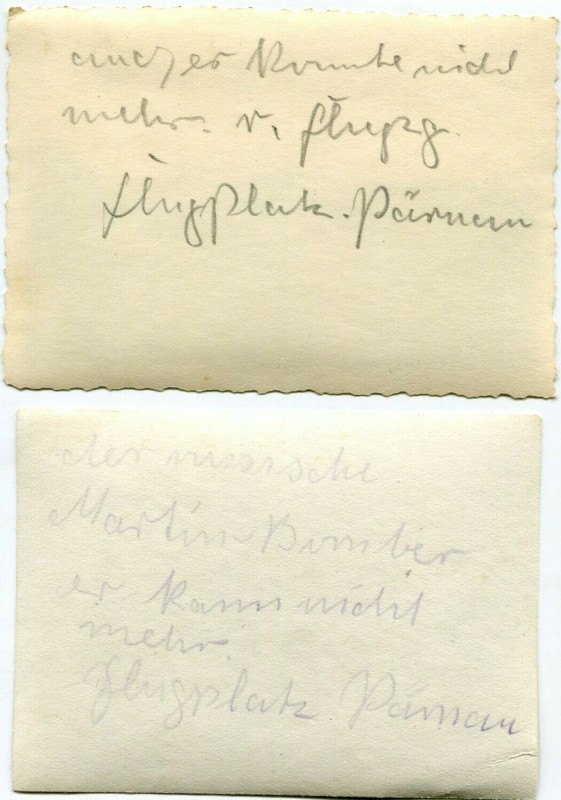 auch er konnte nicht
mehr. v. Flugzg.
Flugplatz. Pärnau
der russische
Martin Bomber
er kann nicht
mehr.
Flugplatz Pärnau